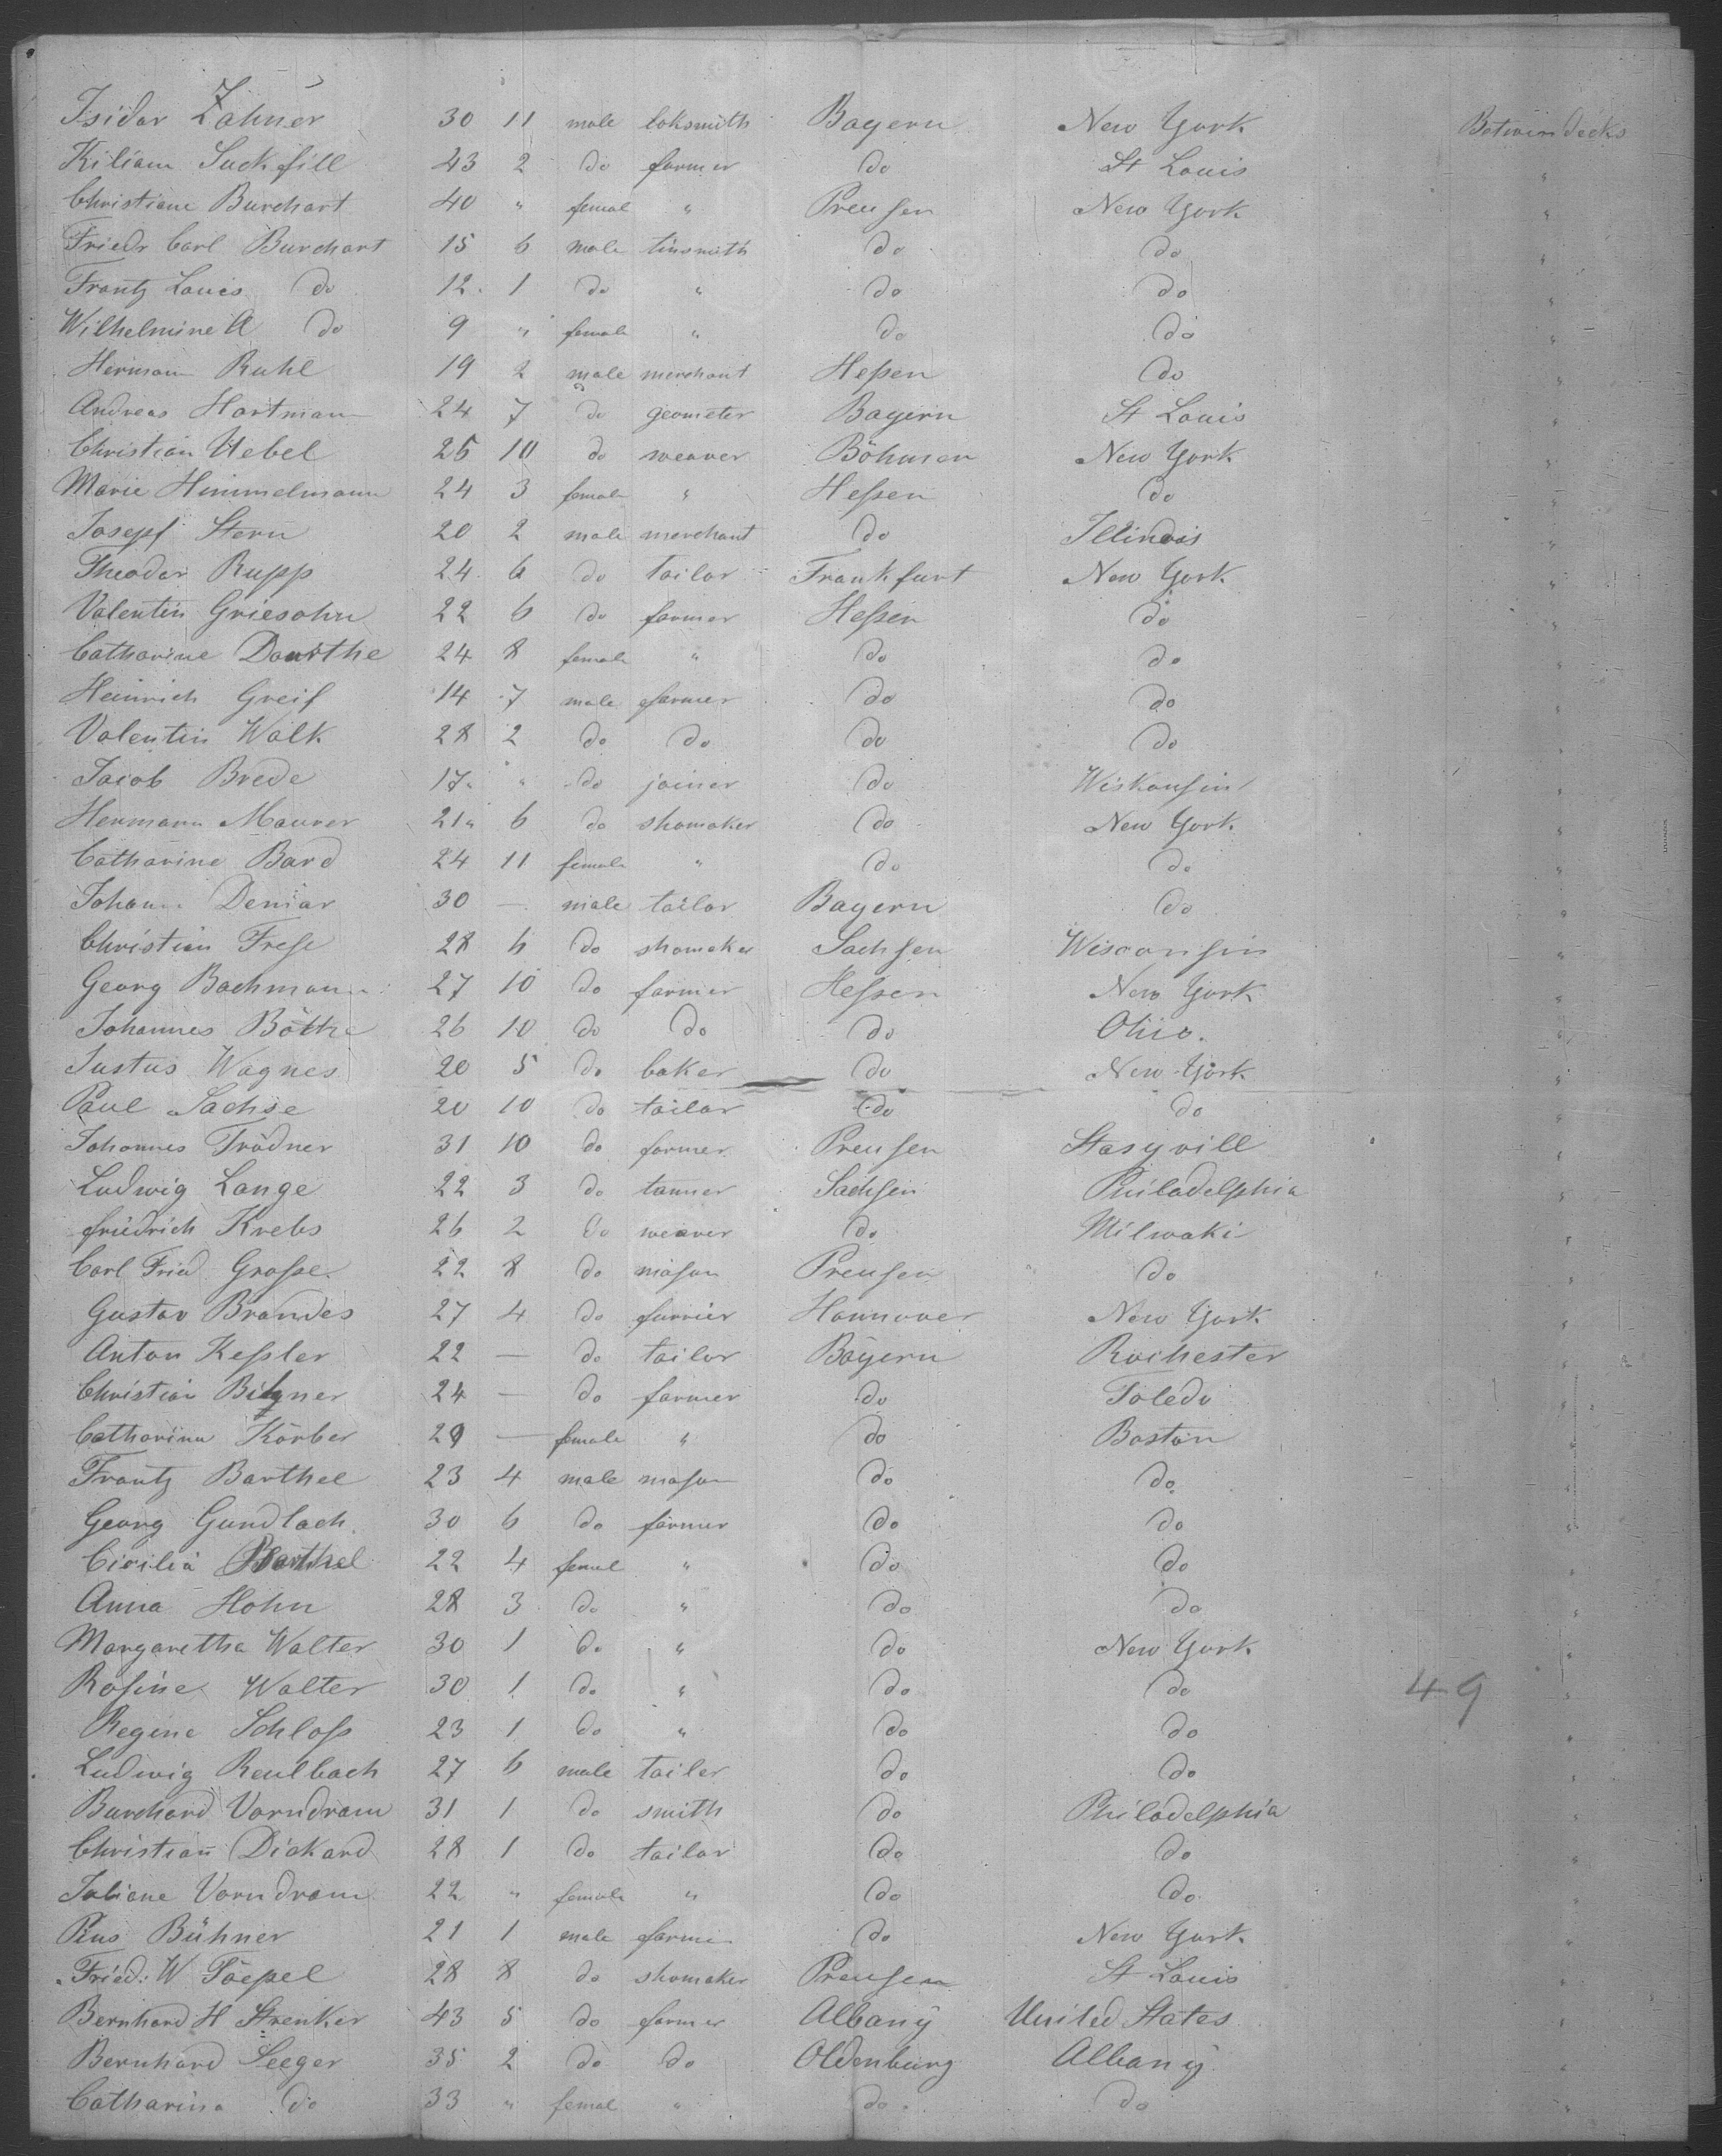 Isidor Zahner 30 11 male loksmith Bayern New York Betwin decks
Kilian Suckfill 43 2 do farmer do St Louis "
Christiane Burchart 40 " femal " Preusen New York "
Friedr Carl Burchart 15 6 male tinsmith do do "
Frantz Louis do 12 1 do " do do "
Wilhelmine A do 9 " female " do do "
Herman Ruhl 19 2 male merchant Hessen do "
Andreas Hartmann 24 7 do geometer Bayern St Louis "
Christian Uebel 25 10 do weaver Böhmen New York "
Marie Himmelmann 24 3 female " Hessen do "
Josepf Stern 20 2 male merchant do Illinois "
Theodor Rupp 24 6 do tailor Frankfurt New York "
Valentin Griesohn 22 6 do farmer Hessen do "
Catharine 24 8 female " do do "
Heinrich Greif 14 7 male farmer do do "
Valentin Walk 28 2 do do do do "
Jacob Brede 17 " do joiner do Wiskonsin "
Hermann Maurer 21 6 do shomaker do New York "
Catharine Bard 24 11 female " do do "
Johann Demar 30 — male tailor Bayern do "
Christian Frese 28 6 do shomaker Sachsen Wisconsin "
Georg Bachmann 27 10 do farmer Hessen New York "
Johannes Böthe 26 10 do do do Ohio. "
Justus Wagnes 20 5 do baker do New York "
Paul Sachse 20 10 do tailor do do "
Johannes Trödner 31 10 do farmer Preusen Stasyvill "
Ludwig Lange 22 3 do tanner Sachsen Philadelphia "
friedrich Krebs 26 2 do weaver do Milwaki "
Carl Fried Grosse 22 8 do mason Preusen do "
Gustav Brandes 27 4 do furrier Hannover New York "
Anton Kessler 22 — do tailor Bayern Rochester "
Christian 24 — do farmer do Toledo "
Catharina Körber 29 — female " do Boston "
Frantz Barthel 23 4 male mason do do "
Georg Gundlach 30 6 do farmer do do "
Cicilia Barthel 22 4 femal " do do "
Anna Hohn 28 3 do " do do "
Margaretha Walter 30 1 do " do New York "
Rosine Walter 30 1 do " do do 49 "
Regine Schloss 23 1 do " do do "
Ludwig Reulbach 27 6 male tailer do do "
Burchard Vorndram 31 1 do smith do Philadelphia "
Christian Dickard 28 1 do tailor do do "
Juliane Vorndram 22 " female " do do "
Pius Bühner 21 1 male farmer do New York "
Fried: W Töepel 28 8 do shomaker Preusen St Louis "
Bernhard H Strenker 43 5 do farmer Albany United States "
Bernhard Seeger 35 2 do do Oldenburg Albany "
Catharina do 33 " femal " do do "